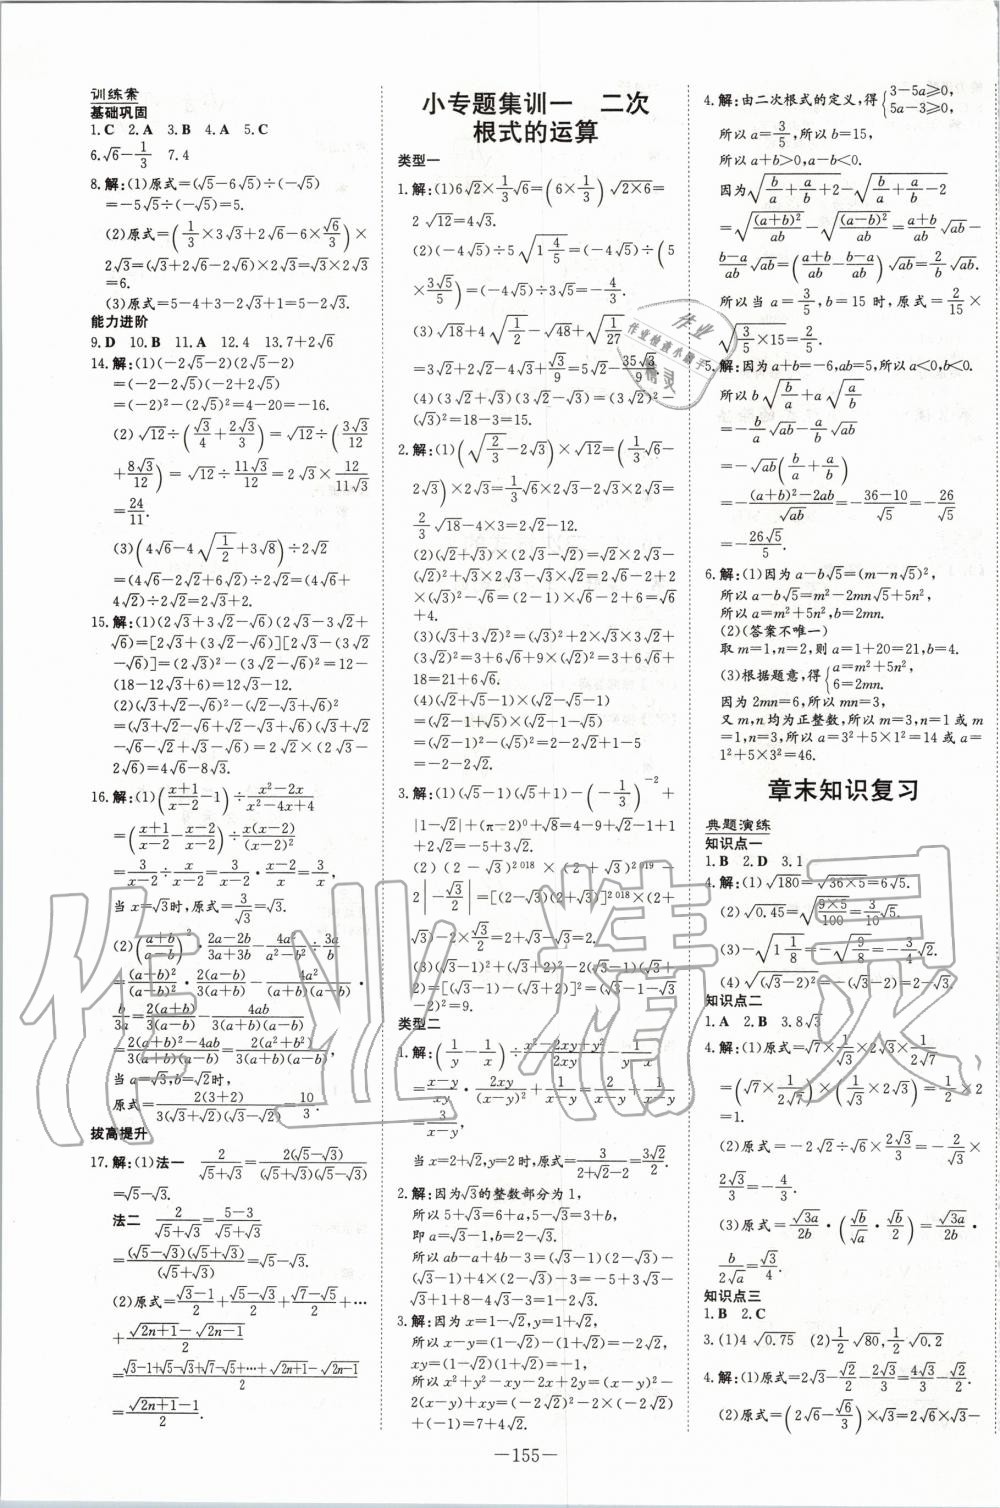 训练案
基础巩固
1.C 2.A 3.B 4.A 5.C
6.√6−1/3 7.4
8.解:(1)原式=(√5−6√5)÷(−√5)
=−5√5÷(−√5)=5.
(2)原式=(1/3×3√3+2√6−6×√6/3)×
2√3=(√3+2√6−2√6)×2√3=√3×2√3
=6.
(3)原式=5−4+3−2√3+1=5−2√3.
能力进阶
9.D 10.B 11.A 12.4 13.7+2√6
14.解:(1)(−2√5−2)(2√5−2)
=(−2−2√5)(−2+2√5)
=(−2)²−(2√5)²=4−20=−16.
(2)√12÷(√3/4+2√3/3)=√12÷(3√3/12
+8√3/12)=√12÷11√3/12=2√3×12/11√3
=24/11.
(3)(4√6−4√(1/2)+3√8)÷2√2
=(4√6−2√2+6√2)÷2√2=(4√6+
4√2)÷2√2=2√3+2.
15.解:(1)(2√3+3√2−√6)(2√3−3√2+
√6)=[2√3+(3√2−√6)][2√3−(3√2
−√6)]=(2√3)²−(3√2−√6)²=12−
(18−12√3+6)=12√3−12.
(2)(√3+√2−√6)²−(√2−√3+√6)²
=(√3+√2−√6+√2−√3+√6)(√3+√2
−√6−√2+√3−√6)=2√2×(2√3−
2√6)=4√6−8√3.
16.解:(1)((x+1)/(x−2)−1)÷(x²−2x)/(x²−4x+4)
=((x+1)/(x−2)−(x−2)/(x−2))÷x(x−2)/(x−2)²
=3/(x−2)÷x/(x−2)=3/(x−2)·(x−2)/x=3/x,
当x=√3时,原式=3/√3=√3.
(2)((a+b)/(a−b))²·(2a−2b)/(3a+3b)−4a²/(a²−b²)÷3a/b
=(a+b)²/(a−b)²·2(a−b)/3(a+b)−4a²/(a+b)(a−b)·
b/3a=2(a+b)/3(a−b)−4ab/3(a+b)(a−b)
=(2(a+b)²−4ab)/3(a+b)(a−b)=2(a²+b²)/3(a+b)(a−b),
当a=√3,b=√2时,
原式=2(3+2)/3(√3+√2)(√3−√2)=10/3.
拔高提升
17.解:(1)法一 2/(√5+√3)=2(√5−√3)/(√5+√3)(√5−√3)
=√5−√3.
法二 2/(√5+√3)=(5−3)/(√5+√3)
=(√5−√3)(√5+√3)/(√5+√3)=√5−√3.
(2)原式=(√3−1)/2+(√5−√3)/2+(√7−√5)/2+…
+(√(2n+1)−√(2n−1))/2
=(√3−1+√5−√3+√7−√5+…+√(2n+1)−√(2n−1))/2
=(√(2n+1)−1)/2.
小专题集训一 二次
根式的运算
类型一
1.解:(1)6√2×1/3√6=(6×1/3)√(2×6)=
2√12=4√3.
(2)(−4√5)÷5√(1 4/5)=(−4√5)÷(5
×3√5/5)=(−4√5)÷3√5=−4/3.
(3)√18+4√(1/2)−√48+√(1/27)
=3√2+2√2−4√3+√3/9=5√2−35√3/9.
(4)(3√2+√3)(3√2−√3)=(3√2)²−
(√3)²=18−3=15.
2.解:(1)(√(2/3)−2√3)×2√3=(1/3√6−
2√3)×2√3=1/3√6×2√3−2√3×2√3=
2/3√18−4×3=2√2−12.
(2)(√2+√3)×(2√3−√2)=√2×2√3−
(√2)²+2×(√3)²−√3×√2=2√6−2+2
×(√3)²−√6=(2−1)×√6−2+6=√6
+4.
(3)(√3+3√2)²=(√3)²+2×√3×3√2+
(3√2)²=3+6√6+9×(√2)²=3+6√6+
18=21+6√6.
(4)(√2+√5−1)×(√2−√5−1)
=(√2−1+√5)×(√2−1−√5)
=(√2−1)²−(√5)²=2−2√2+1−5
=−2−2√2.
3.解:(1)(√5−1)(√5+1)−(−1/3)⁻²+
|1−√2|+(π−2)⁰+√8=4−9+√2−1+1
+2√2=−5+3√2.
(2)(2−√3)²⁰¹⁸×(2+√3)²⁰¹⁹−
2|−√3/2|=[(2−√3)(2+√3)]²⁰¹⁸×(2+
√3)−2×√3/2=2+√3−√3=2.
(3)(√3−1)²+(√3+2)²−2(√3−1)(√3+
2)=[(√3−1)−(√3+2)]²=(√3−1−√3
−2)²=9.
类型二
1.解:(1/y−1/x)÷(x²−2xy+y²)/2xy−1/(y−x)
=(x−y)/xy·2xy/(x−y)²+1/(x−y)=2/(x−y)+1/(x−y)
=3/(x−y),
当x=2+√2,y=2时,原式=3/(2+√2−2)=3√2/2.
2.解:因为√3的整数部分为1,
所以5+√3=6+a,5−√3=3+b,
即a=√3−1,b=2−√3.
所以ab−a+4b−3=(√3−1)(2−√3)−
(√3−1)+4(2−√3)−3=2√3−3−2+
√3−√3+1+8−4√3−3=1−2√3.
3.解:因为x=1−√2,y=1+√2,
所以x−y=(1−√2)−(1+√2)=−2√2,
xy=(1−√2)(1+√2)=−1,
所以x²+y²−xy−2x+2y=(x−y)²−
2(x−y)+xy=(−2√2)²−2×(−2√2)
+(−1)=7+4√2.
4.解:由二次根式的定义,得{3−5a⩾0,
5a−3⩾0,
所以a=3/5,所以b=15,
所以a+b>0,a−b<0.
因为√(b/a+a/b+2)−√(b/a+a/b−2)
=√((a+b)²/ab)−√((a−b)²/ab)=(a+b)/ab√ab−
(b−a)/ab√ab=((a+b)/ab−(b−a)/ab)√ab=2/b√ab.
所以当a=3/5,b=15时,原式=2/15×
√(3/5×15)=2/5.
5.解:因为a+b=−6,ab=5,所以a<0,b<0.
所以b√(b/a)+a√(a/b)
=−b/a√ab−a/b√ab
=−√ab(b/a+a/b)
=−((a+b)²−2ab)/√ab=−(36−10)/√5=−26/√5
=−26√5/5.
6.解:(1)因为a−b√5=(m−n√5)²,
所以a−b√5=m²−2mn√5+5n²,
所以a=m²+5n²,b=2mn.
(2)(答案不唯一)
取m=1,n=2,则a=1+20=21,b=4.
(3)根据题意,得{a=m²+5n²,
6=2mn.
因为2mn=6,所以mn=3,
又m,n均为正整数,所以m=3,n=1或m
=1,n=3,所以a=3²+5×1²=14或a=
1²+5×3²=46.
章末知识复习
典题演练
知识点一
1.B 2.D 3.1
4.解:(1)√180=√(36×5)=6√5.
(2)√0.45=√(9×5/100)=3/10√5.
(3)−√(1 1/8)=−√(9/8)=−3/4√2.
(4)√(√3−2)²=−(√3−2)=2−√3.
知识点二
1.A 2.B 3.8√3
4.解:(1)原式=√7×1/√3×2√3×1/2√7
=(√7×1/2√7)×(1/√3×2√3)=1/2×2
=1.
(2)原式=−2√2÷√6×2√3/3=−2/√3×
2√3/3=−4/3.
(3)原式=√3a/2b·(√b/a·√b/2)=√3a/2b·
b/2√a=√3/4.
知识点三
1.B 2.C
3.(1)4√0.75 (2)1/2√80,1/2√0.2
4.解:(1)原式=2√3−√2/2−2√3/3=4√3/3−√2/2.
(2)原式=(2√6−√6/3)×√3=2√6×√3−
—155—
作业精灵